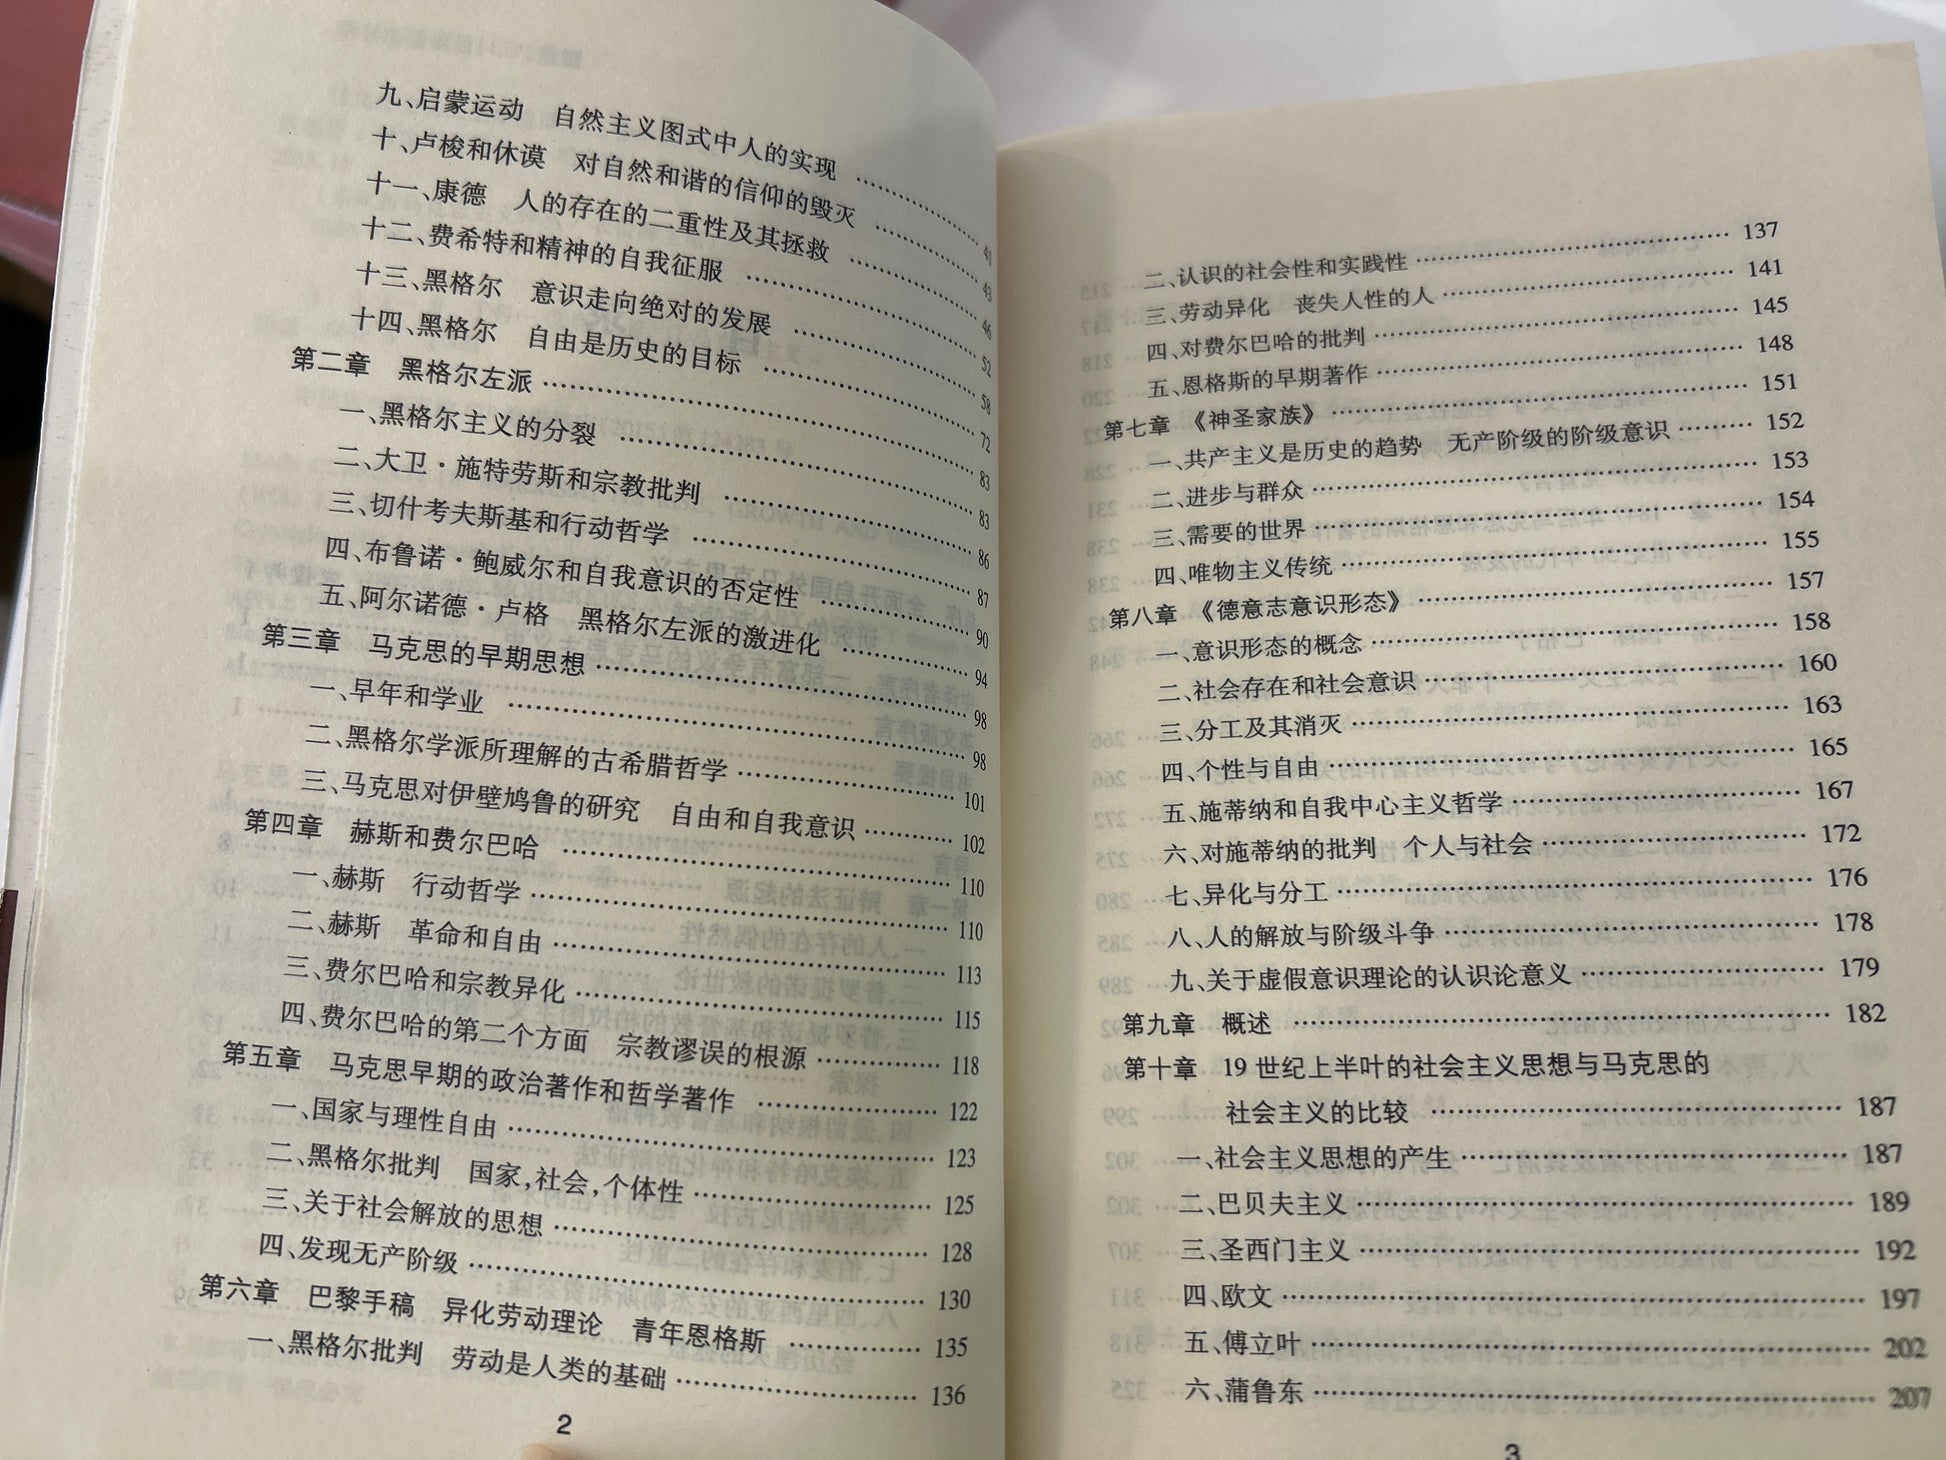 九、启蒙运动　自然主义图式中人的实现 …… 41
十、卢梭和休谟　对自然和谐的信仰的毁灭 …… 43
十一、康德　人的存在的二重性及其拯救 …… 46
十二、费希特和精神的自我征服 …… 52
十三、黑格尔　意识走向绝对的发展 …… 58
十四、黑格尔　自由是历史的目标 …… 72
第二章　黑格尔左派 …… 83
一、黑格尔主义的分裂 …… 83
二、大卫·施特劳斯和宗教批判 …… 86
三、切什考夫斯基和行动哲学 …… 87
四、布鲁诺·鲍威尔和自我意识的否定性 …… 90
五、阿尔诺德·卢格　黑格尔左派的激进化 …… 94
第三章　马克思的早期思想 …… 98
一、早年和学业 …… 98
二、黑格尔学派所理解的古希腊哲学 …… 101
三、马克思对伊壁鸠鲁的研究　自由和自我意识 …… 102
第四章　赫斯和费尔巴哈 …… 110
一、赫斯　行动哲学 …… 110
二、赫斯　革命和自由 …… 113
三、费尔巴哈和宗教异化 …… 115
四、费尔巴哈的第二个方面　宗教谬误的根源 …… 118
第五章　马克思早期的政治著作和哲学著作 …… 122
一、国家与理性自由 …… 123
二、黑格尔批判　国家,社会,个体性 …… 125
三、关于社会解放的思想 …… 128
四、发现无产阶级 …… 130
第六章　巴黎手稿　异化劳动理论　青年恩格斯 …… 135
一、黑格尔批判　劳动是人类的基础 …… 136
2
二、认识的社会性和实践性 …… 137
三、劳动异化　丧失人性的人 …… 141
四、对费尔巴哈的批判 …… 145
五、恩格斯的早期著作 …… 148
第七章　《神圣家族》 …… 151
一、共产主义是历史的趋势　无产阶级的阶级意识 …… 152
二、进步与群众 …… 153
三、需要的世界 …… 154
四、唯物主义传统 …… 155
第八章　《德意志意识形态》 …… 157
一、意识形态的概念 …… 158
二、社会存在和社会意识 …… 160
三、分工及其消灭 …… 163
四、个性与自由 …… 165
五、施蒂纳和自我中心主义哲学 …… 167
六、对施蒂纳的批判　个人与社会 …… 172
七、异化与分工 …… 176
八、人的解放与阶级斗争 …… 178
九、关于虚假意识理论的认识论意义 …… 179
第九章　概述 …… 182
第十章　19世纪上半叶的社会主义思想与马克思的
社会主义的比较 …… 187
一、社会主义思想的产生 …… 187
二、巴贝夫主义 …… 189
三、圣西门主义 …… 192
四、欧文 …… 197
五、傅立叶 …… 202
六、蒲鲁东 …… 207
3